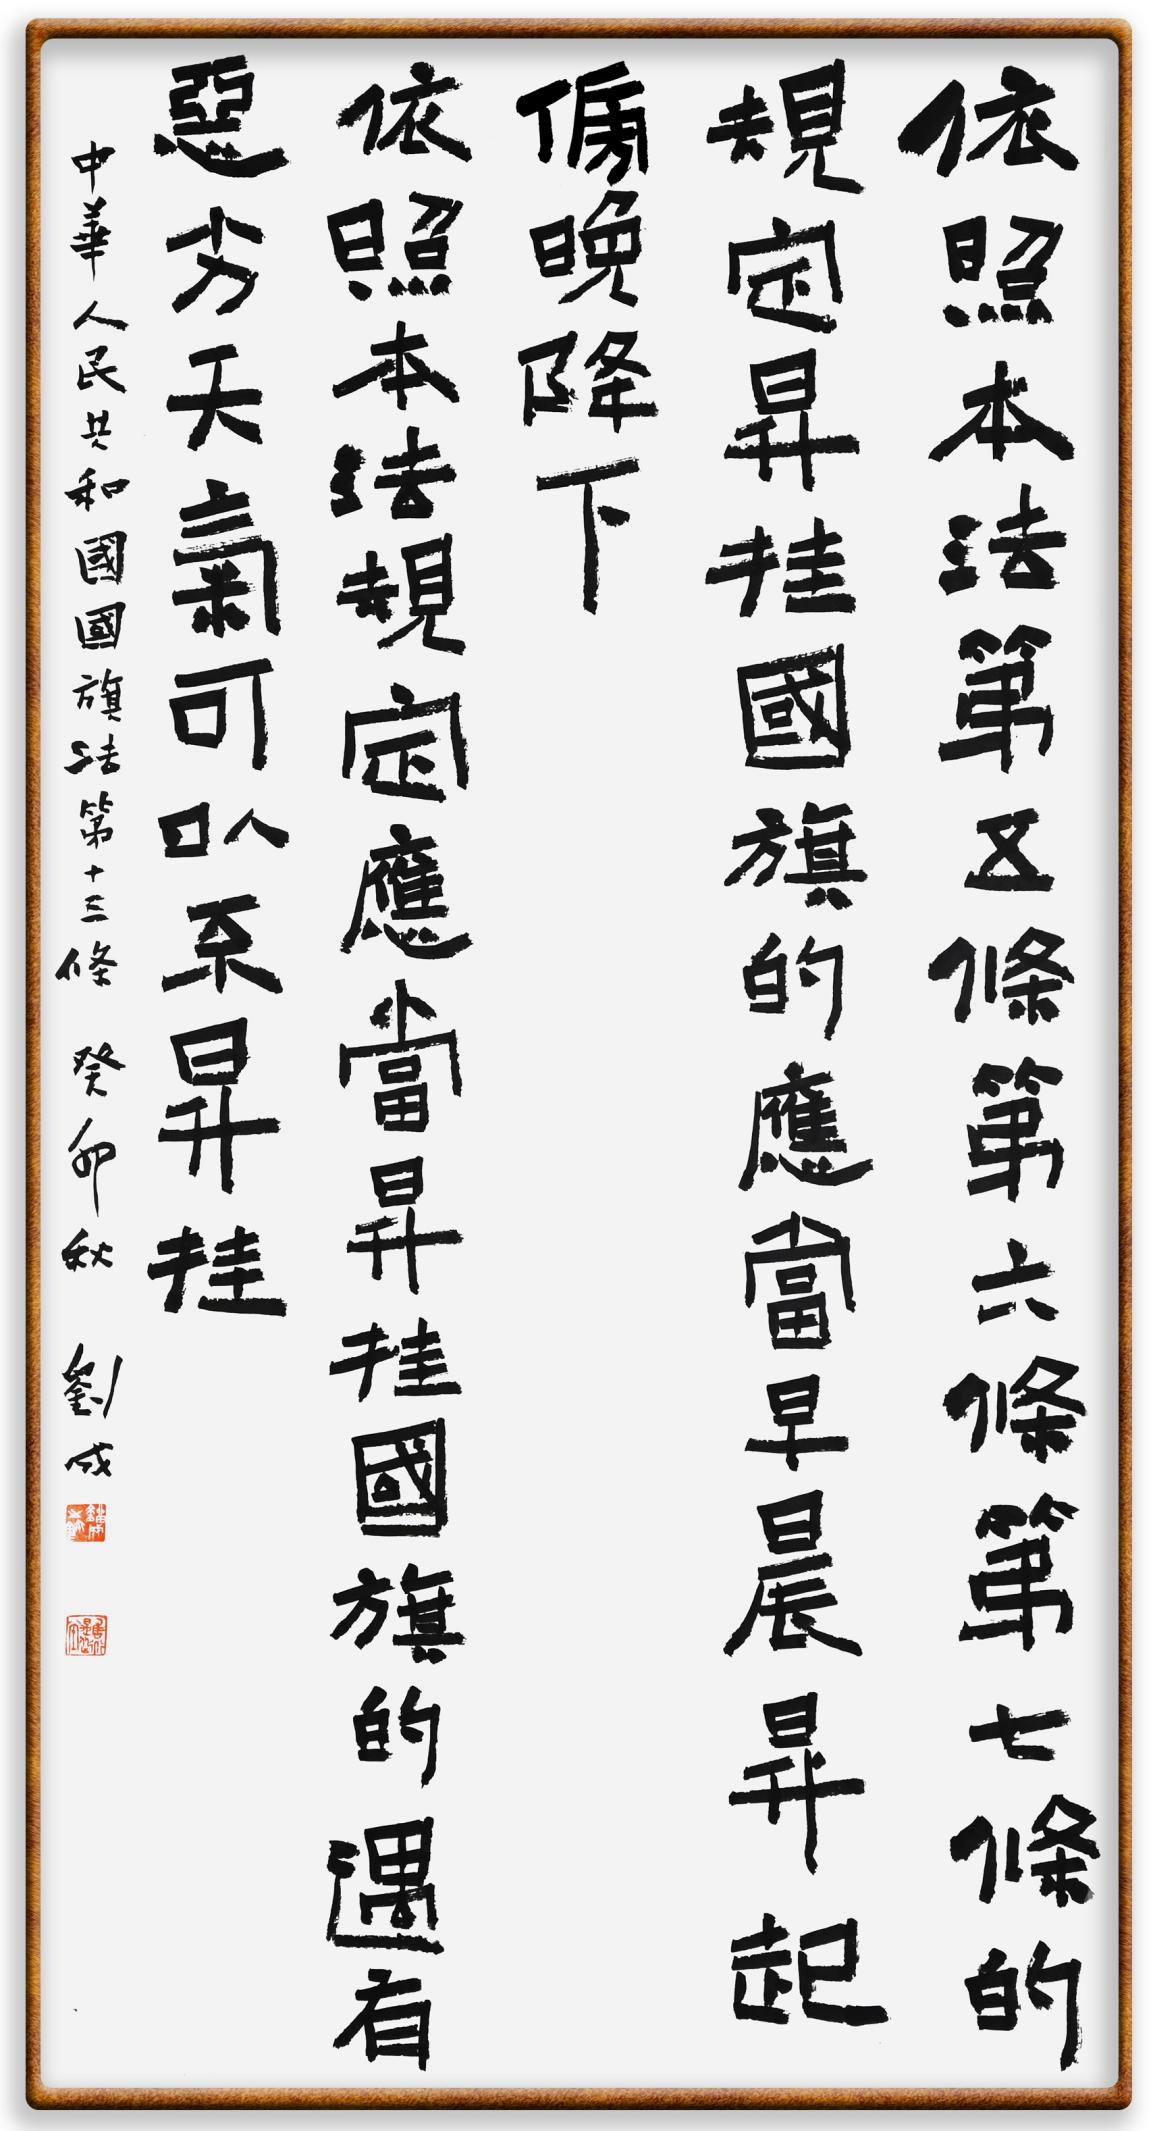 依照本法第五條第六條第七條的
規定昇挂國旗的應當早晨昇起
傍晚降下
依照本法規定應當昇挂國旗的遇有
惡劣天氣可以不昇挂
中華人民共和國國旗法第十三條 癸卯秋 劉成